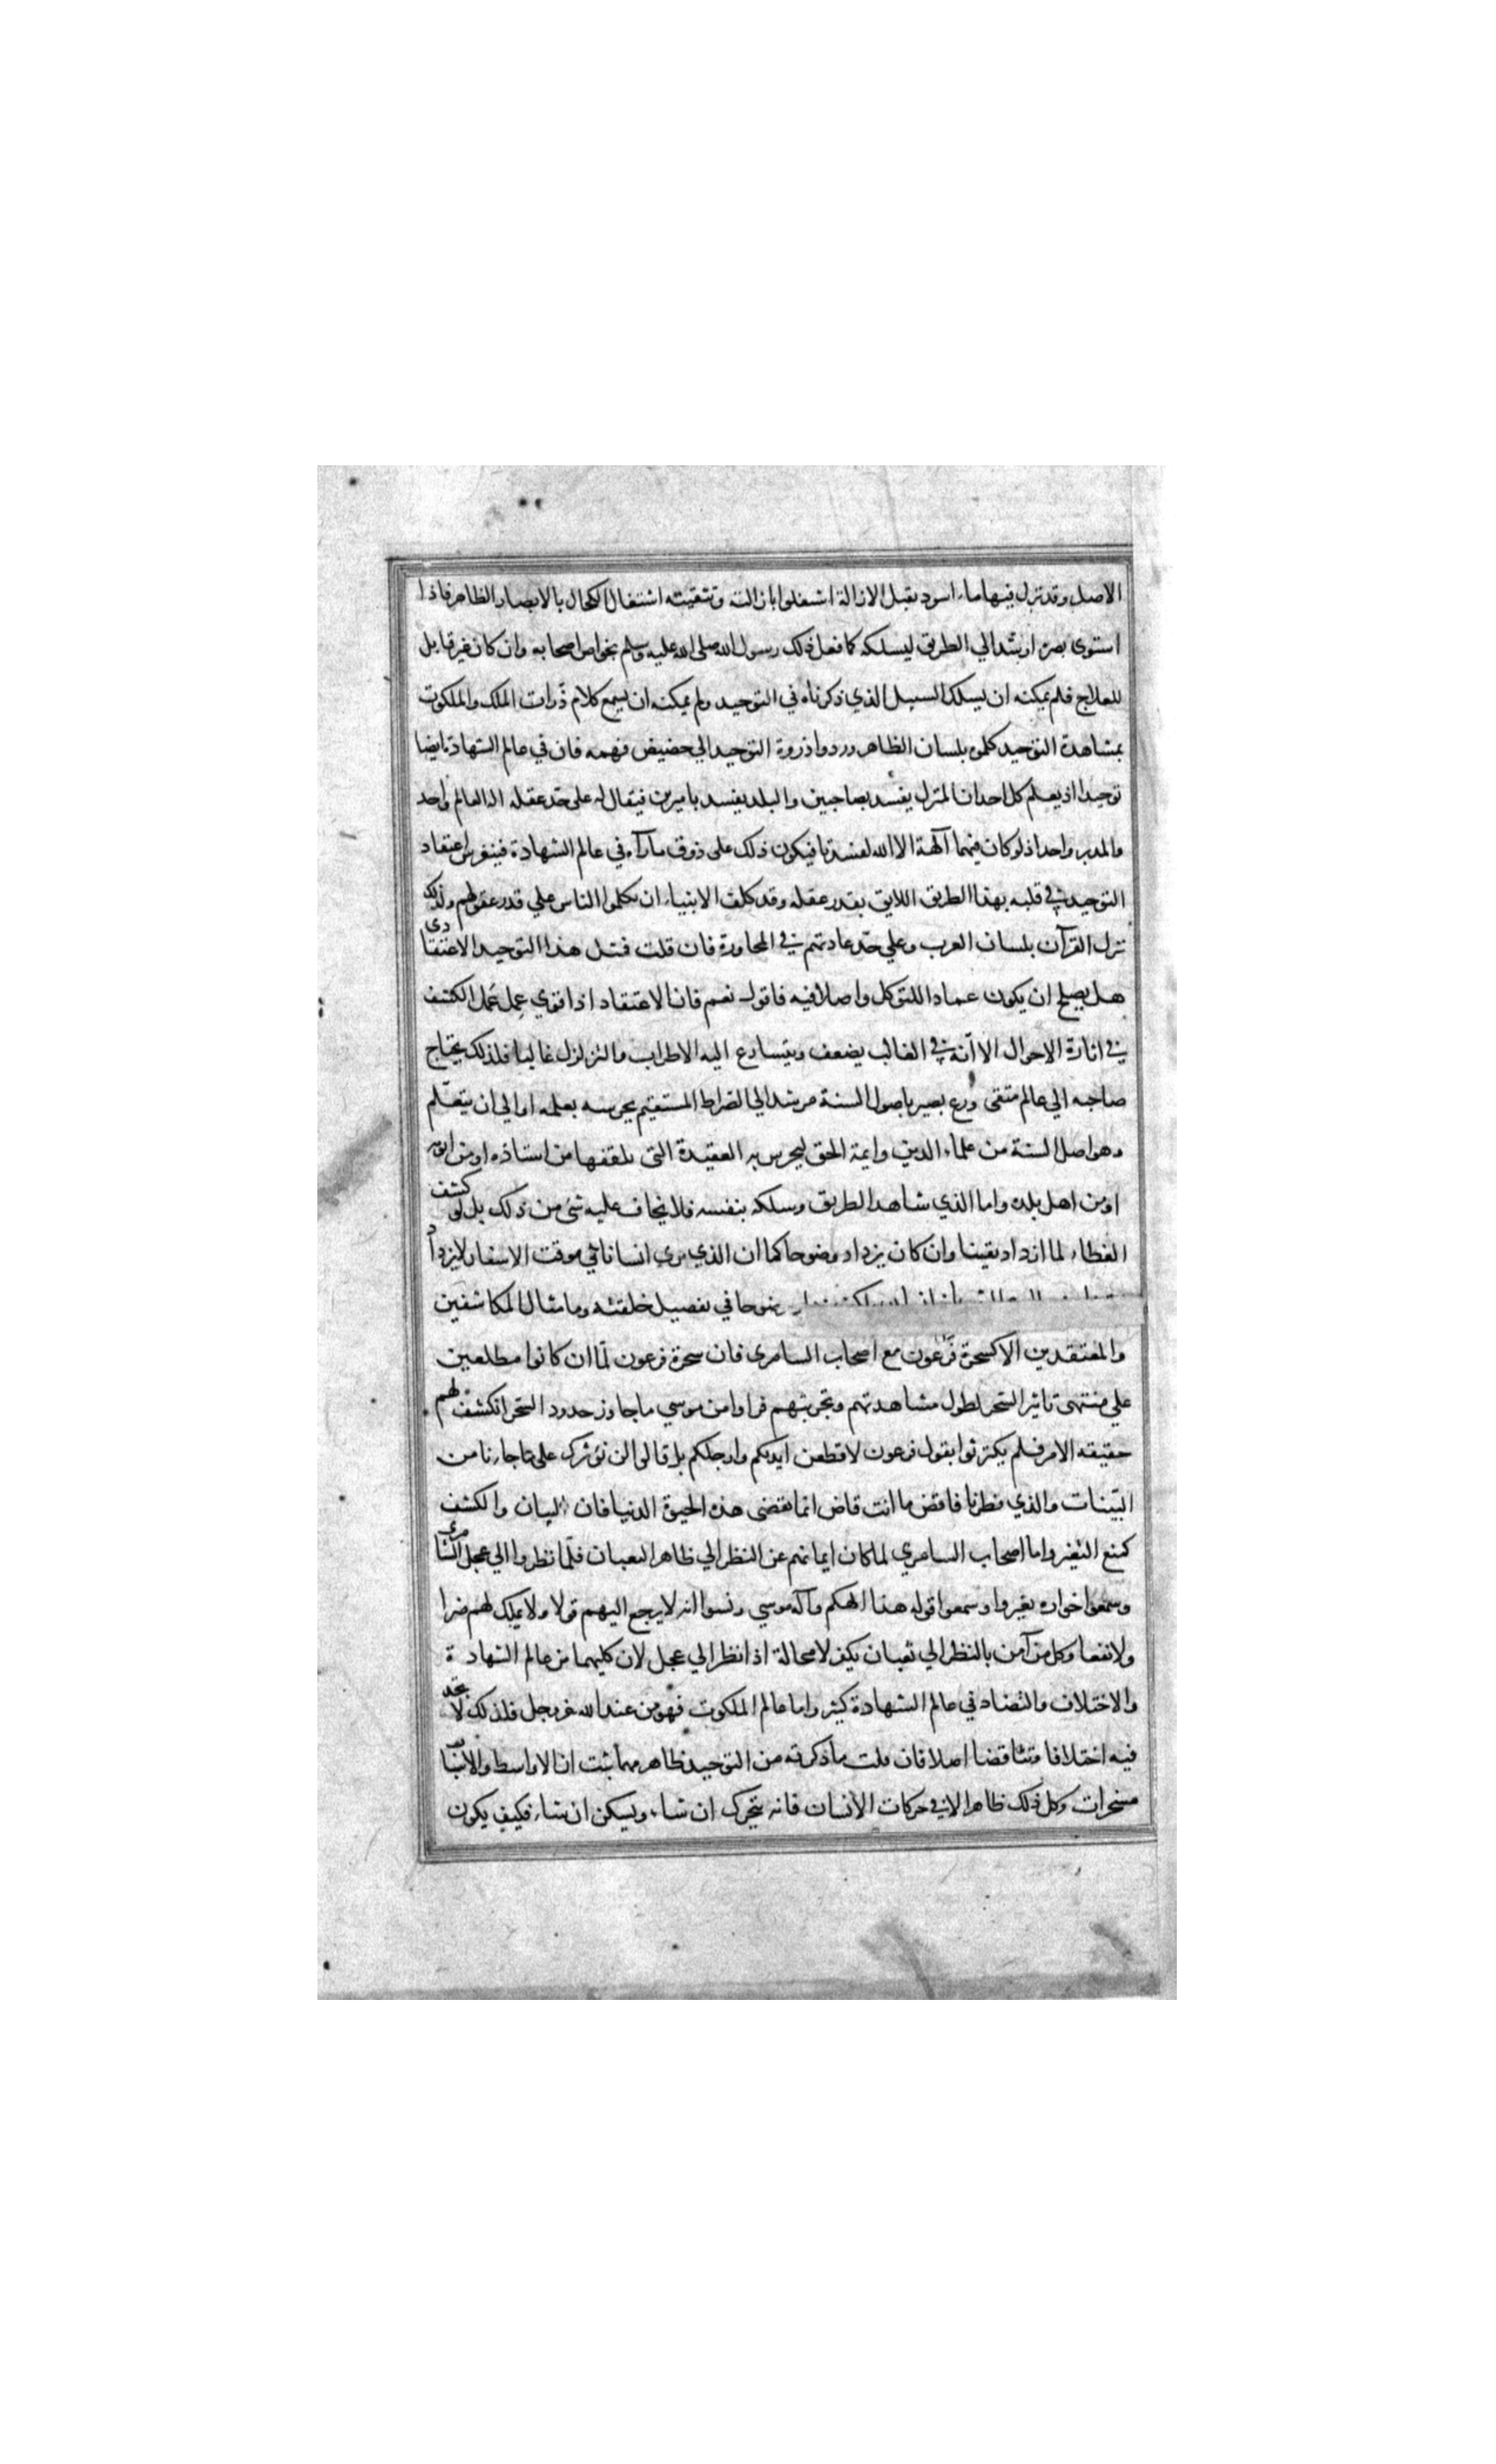 الاصل وقد تزل فيها ماء اسود يقبل الازالة اشتغلوا بازالته وتنقيته اشتغال الكحال بالابصار الظاهر فاذا
استوى بصره ارشد الي الطريق ليسلكه كما فعل ذلك رسول الله صلى الله عليه وسلم بخواص اصحابه وان كان غير قابل
للعلاج فلم يمكنه ان يسلك السبيل الذي ذكرناه في التوحيد ولم يمكنه ان يسمع كلام ذرات الملك والملكوت
بمشاهدة التوحيد كلموه بلسان الظاهر وردوا ذروة التوحيد الي حضيض فهمه فان في عالم الشهادة ايضا
توحيدا اذ يعلم كل احد ان المنزل يفسد بصاحبين والبلد يفسد باميرين فيقال له على حد عقله اله العالم واحد
والمدبر واحد اذ لو كان فيهما آلهة الا الله لفسدتا فيكون ذلك على ذوق ما رآه في عالم الشهادة فينغرس اعتقاد
التوحيد في قلبه بهذا الطريق اللايق بقدر عقله وقد كلف الانبياء ان يكلموا الناس علي قدر عقولهم ولذلك
نزل القرآن بلسان العرب وعلي حد عادتهم في المحاورة فان قلت فمثل هذا التوحيد الاعتقادى
هل يصلح ان يكون عمادا للتوكل واصلا فيه فاقول نعم فان الاعتقاد اذا قوي عمل عمل الكشف
في اثارة الاحوال الا أنه في الغالب يضعف ويتسارع اليه الاضطراب والتزلزل غالبا فلذلك يحتاج
صاحبه الي عالم متقى ورع بصير باصول السنة مرشد الي الصراط المستقيم يحرسه بعلمه او الي ان يتعلم
هو اصل السنة من علماء الدين وايمة الحق ليحرس به العقيدة التى تلقفها من استاذه او من ابويه
او من اهل بلده واما الذي شاهد الطريق وسلكه بنفسه فلا يخاف عليه شئ من ذلك بل لو كشف
الغطاء لما ازداد يقينا وان كان يزداد وضوحا كما ان الذي يرى انسانا في وقت الاسفار لا يزداد
وضوحا في تفصيل خلقته وما مثال المكاشفين
والمعتقدين الا كسحرة فرعون مع اصحاب السامرى فان سحرة فرعون لما ان كانوا مطلعين
علي منتهى تاثير السحر لطول مشاهدتهم وتجربتهم فراوا من موسي ما جاوز حدود السحر انكشف لهم
حقيقه الامر فلم يكترثوا بقول فرعون لاقطعن ايديكم وارجلكم بل قالوا لن نؤثرك على ما جاءنا من
البينات والذي فطرنا فاقض ما انت قاض انما تقضى هذه الحيوة الدنيا فان البيان والكشف
كمنع التغير واما اصحاب السامري لما كان ايمانهم عن النظر الي ظاهر الثعبان فلما نظروا الي عجل السامرى
وسمعوا خواره تغيروا وسمعوا قوله هذا الهكم وآله موسي ونسوا انه لا يرجع اليهم قولا ولا يملك لهم ضرا
ولا نفعا وكل من آمن بالنظر الي ثعبان يكفر لا محالة اذا نظر الي عجل لان كليهما من عالم الشهادة
والاختلاف والتضاد في عالم الشهادة كثير واما عالم الملكوت فهو من عند الله عز وجل فلذلك لا تجد
فيه اختلافا وتناقضا اصلا فان قلت ما ذكرته من التوحيد ظاهر مهما ثبت ان الاواسط والاسباب
مسخرات وكل ذلك ظاهر الا في حركات الانسان فانه يتحرك ان شاء ويسكن ان شاء فكيف يكون